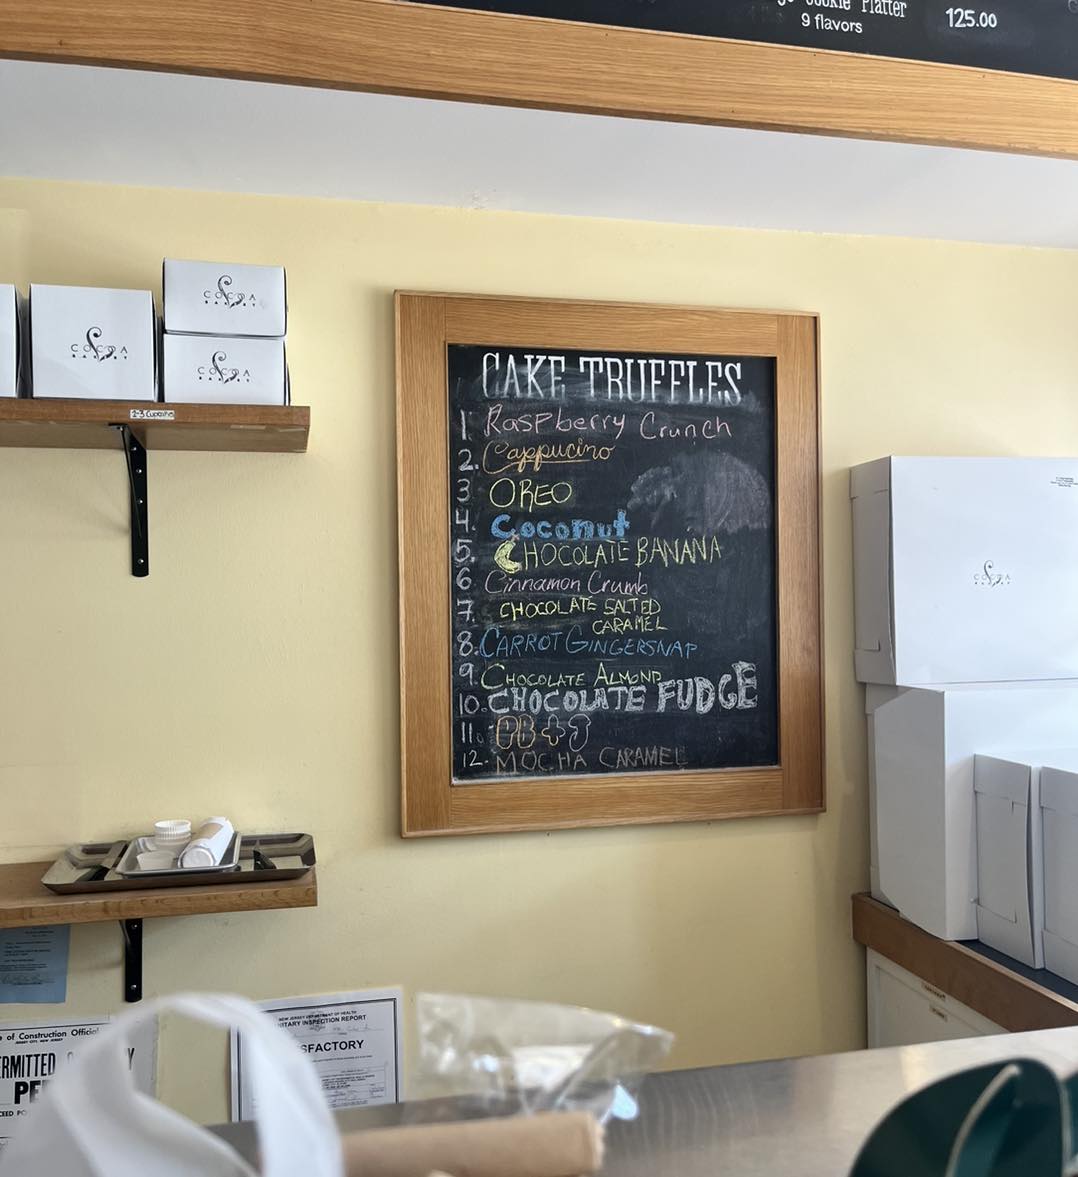 Cookie Platter 125.00
9 flavors
COCOA
BAKERY
COCOA
BAKERY
COCOA
BAKERY
2-3 Cupcakes
CAKE TRUFFLES
1. Raspberry Crunch
2. Cappucino
3. OREO
4. Coconut
5. CHOCOLATE BANANA
6. Cinnamon Crumb
7. CHOCOLATE SALTED
CARAMEL
8. CARROT GINGERSNAP
9. CHOCOLATE ALMOND
10. CHOCOLATE FUDGE
11. PB+J
12. MOCHA CARAMEL
COCOA
BAKERY
NEW JERSEY DEPARTMENT OF HEALTH
ITARY INSPECTION REPORT
SFACTORY
e of Construction Official
JERSEY CITY, NEW JERSEY
ERMITTED
PE